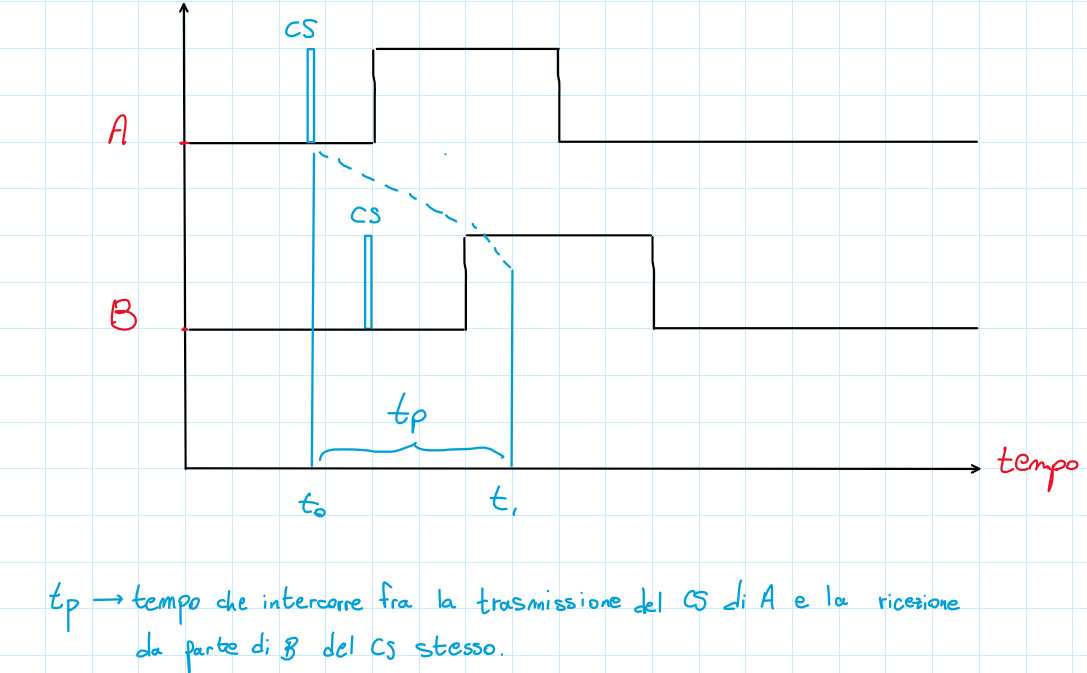 CS
A
CS
B
tp
tempo
t₀
t₁
tp → tempo che intercorre fra la trasmissione del CS di A e la ricezione
da parte di B del CS stesso.